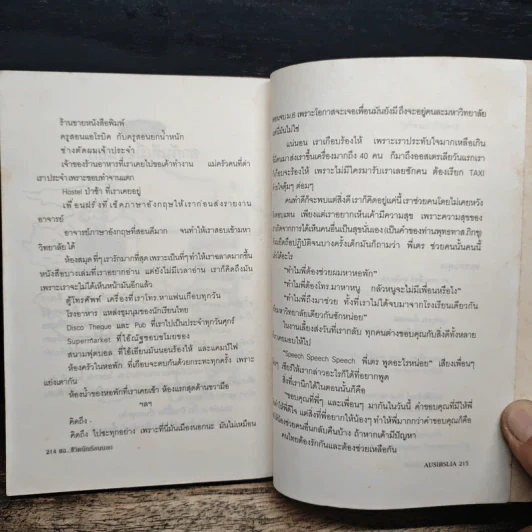 ร้านขายหนังสือพิมพ์
ครูสอนแอโรบิค กับครูสอนยกน้ำหนัก
ช่างตัดผมเจ้าประจำ
เจ้าของร้านอาหารที่เราเคยไปขอเค้าทำงาน แม่ครัวคนที่ด่า
เราประจำเพราะชอบทำจานแตก
Hostel ป่าช้า ที่เราเคยอยู่
เพื่อนฝรั่งที่เช็คภาษาอังกฤษให้เราก่อนส่งรายงาน
อาจารย์
อาจารย์ภาษาอังกฤษที่สอนดีมาก จนทำให้เราสอบเข้ามหา
วิทยาลัยได้
ห้องสมุดที่ๆ เรารักมากที่สุด เพราะเป็นที่ๆ ทำให้เราฉลาดมากขึ้น
หนังสือบางเล่มที่เราอยากอ่าน แต่ยังไม่มีเวลาอ่าน เราก็คิดถึงมัน
เพราะเราจะไม่ได้เห็นหน้ามันอีกแล้ว
ตู้โทรศัพท์ เครื่องที่เราโทร.หาแฟนเกือบทุกวัน
โรงอาหาร แหล่งชุมนุมของนักเรียนไทย
Disco Theque และ Pub ที่เราไปเป็นประจำทุกวันศุกร์
Supermarket ที่ไอ้ณัฐชอบขโมยของ
สนามฟุตบอล ที่ไอ้เอียนมันนอนร้องไห้ และแคมป์ไฟ
ห้องครัวในหอพัก ที่เกือบจะตบกันด้วยกระทะทุกครั้ง เพราะ
แย่งเตากัน
ห้องน้ำของหอพักที่เราเคยเข้า ห้องแรกสุดด้านขวามือ
ฯลฯ
คิดถึง
คิดถึง ไปซะทุกอย่าง เพราะที่นี่มันเมืองนอกนะ มันไม่เหมือน
214 ตอ...ชีวิตนักเรียนนอก
ตอนจบ ม.6 เพราะโอกาสจะเจอเพื่อนมันยังมี ถึงจะอยู่คนละมหาวิทยาลัย
มันไม่ใช่
แน่นอน เราเกือบร้องไห้ เพราะเราประทับใจมากเหลือเกิน
คนมาส่งเราขึ้นเครื่องมากถึง 40 คน ก็มาถึงออสเตรเลียวันแรกเรา
เกือบจะร้องไห้ เพราะไม่มีใครมารับเราเลยซักคน ต้องเรียก TAXI
ไปตุ้มๆ ต่อมๆ
คนทำดีก็จะพบแต่สิ่งดี เราก็คิดอยู่แค่นี้ เราช่วยคนโดยไม่เคยหวัง
ตอบแทน เพียงแต่เราอยากเห็นเค้ามีความสุข เพราะความสุขของ
เกิดจากการได้เห็นคนอื่นเป็นสุขนั่นเอง (เป็นคำของท่านพุทธทาส ภิกขุ)
ถือปฏิบัติจนบางครั้งเด็กมันก็ถามว่า พี่เตร ช่วยคนนั้นคนนี้
ไม่ได้อะไร
"ทำไมพี่ต้องช่วยผมหาหอพัก"
"ทำไมพี่ต้องโทร.มาหาหนู กลัวหนูจะไม่มีเพื่อนหรือไง"
"ทำไมพี่ถึงมาช่วย ทั้งที่เราไม่ได้จบมาจากโรงเรียนเดียวกัน
มหาวิทยาลัยเดียวกันซักหน่อย"
ในงานเลี้ยงส่งวันที่เรากลับ ทุกคนต่างขอบคุณกับสิ่งดีทั้งหลาย
มอบให้ไป
"Speech Speech Speech พี่เตร พูดอะไรหน่อย" เสียงเพื่อนๆ
เชียร์ให้เรากล่าวอะไรก็ได้ที่อยากพูด
สิ่งที่เรานึกได้ในตอนนั้นก็คือ
"ขอบคุณที่พี่ๆ และเพื่อนๆ มากันในวันนี้ คำขอบคุณที่มีให้พี่
ให้พี่ดีใจ แต่สิ่งที่พี่อยากให้น้องๆ ทำให้พี่มากกว่าคำขอบคุณก็คือ
ช่วยคนอื่นกลับคืนบ้าง ถ้าหากเค้ามีปัญหา
คนไทยต้องรักกันและต้องช่วยเหลือกัน
AUSIRSLIA 215